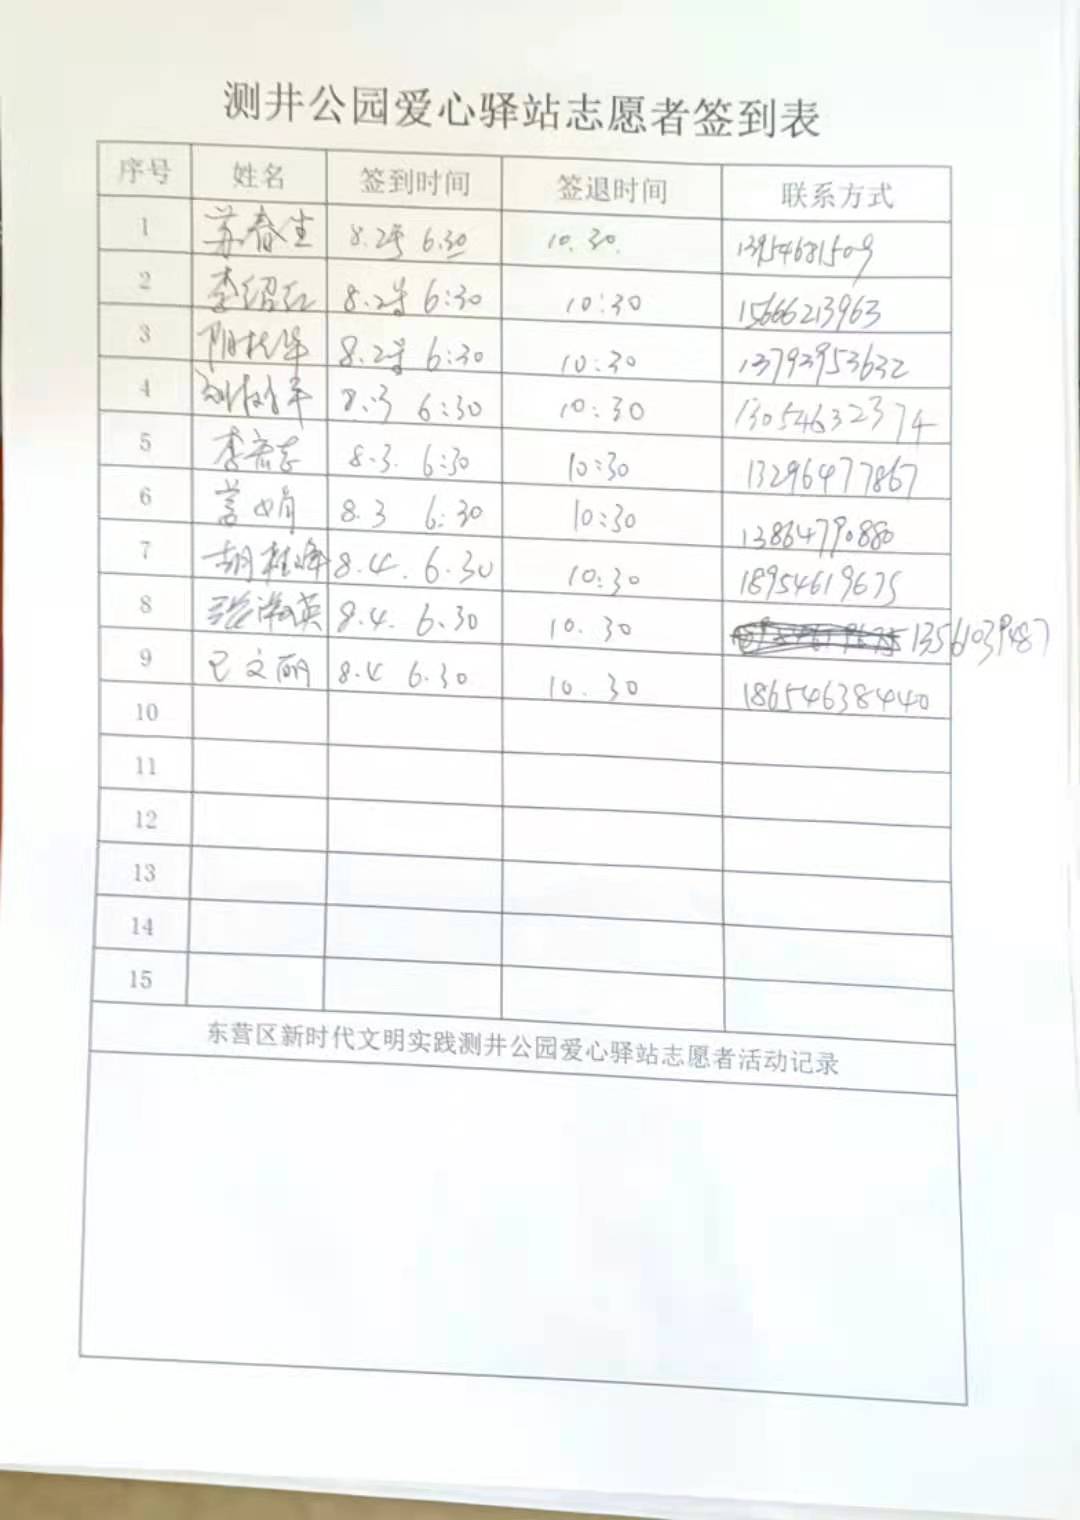 测井公园爱心驿站志愿者签到表
序号 姓名 签到时间 签退时间 联系方式
1 苏春生 8.2号 6.30 10.30. 13954681509
2 李绍红 8.2号 6:30 10:30 15666213963
3 阴桂华 8.2号 6:30 10:30 13793953632
4 8.3 6:30 10:30 13054632374
5 李 志 8.3. 6:30 10:30 13296477867
6 娟 8.3 6:30 10:30 13864790880
7 胡桂峰 8.4. 6.30 10:30 18954619675
8 张淑英 8.4. 6.30 10.30 13561039487
9 文丽 8.4 6.30 10.30 18654638440
10
11
12
13
14
15
东营区新时代文明实践测井公园爱心驿站志愿者活动记录